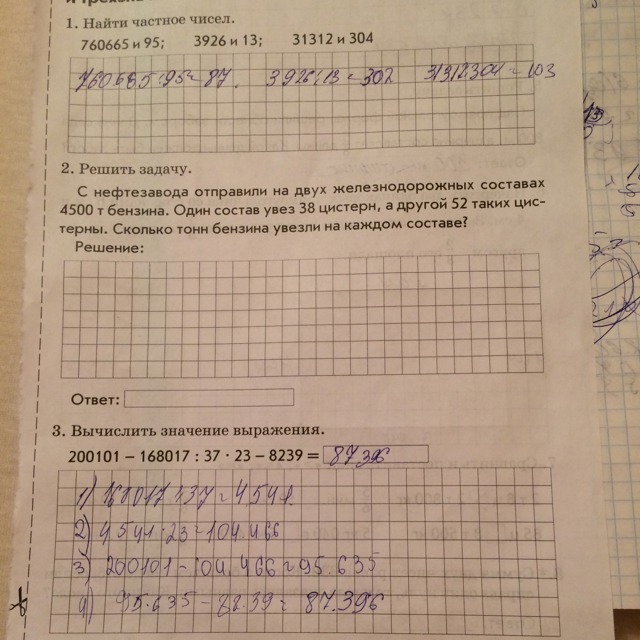 1. Найти частное чисел.
760665 и 95; 3926 и 13; 31312 и 304
760665:95=87. 3926:13=302 31312304=103
2. Решить задачу.
С нефтезавода отправили на двух железнодорожных составах
4500 т бензина. Один состав увез 38 цистерн, а другой 52 таких цис-
терны. Сколько тонн бензина увезли на каждом составе?
Решение:
Ответ:
3. Вычислить значение выражения.
200101 – 168017 : 37 · 23 – 8239 = 87396
1) 168017:37=4541
2) 4541·23=104.466
3) 200101-104.466=95.635
4) 95.635-82.39=87.396